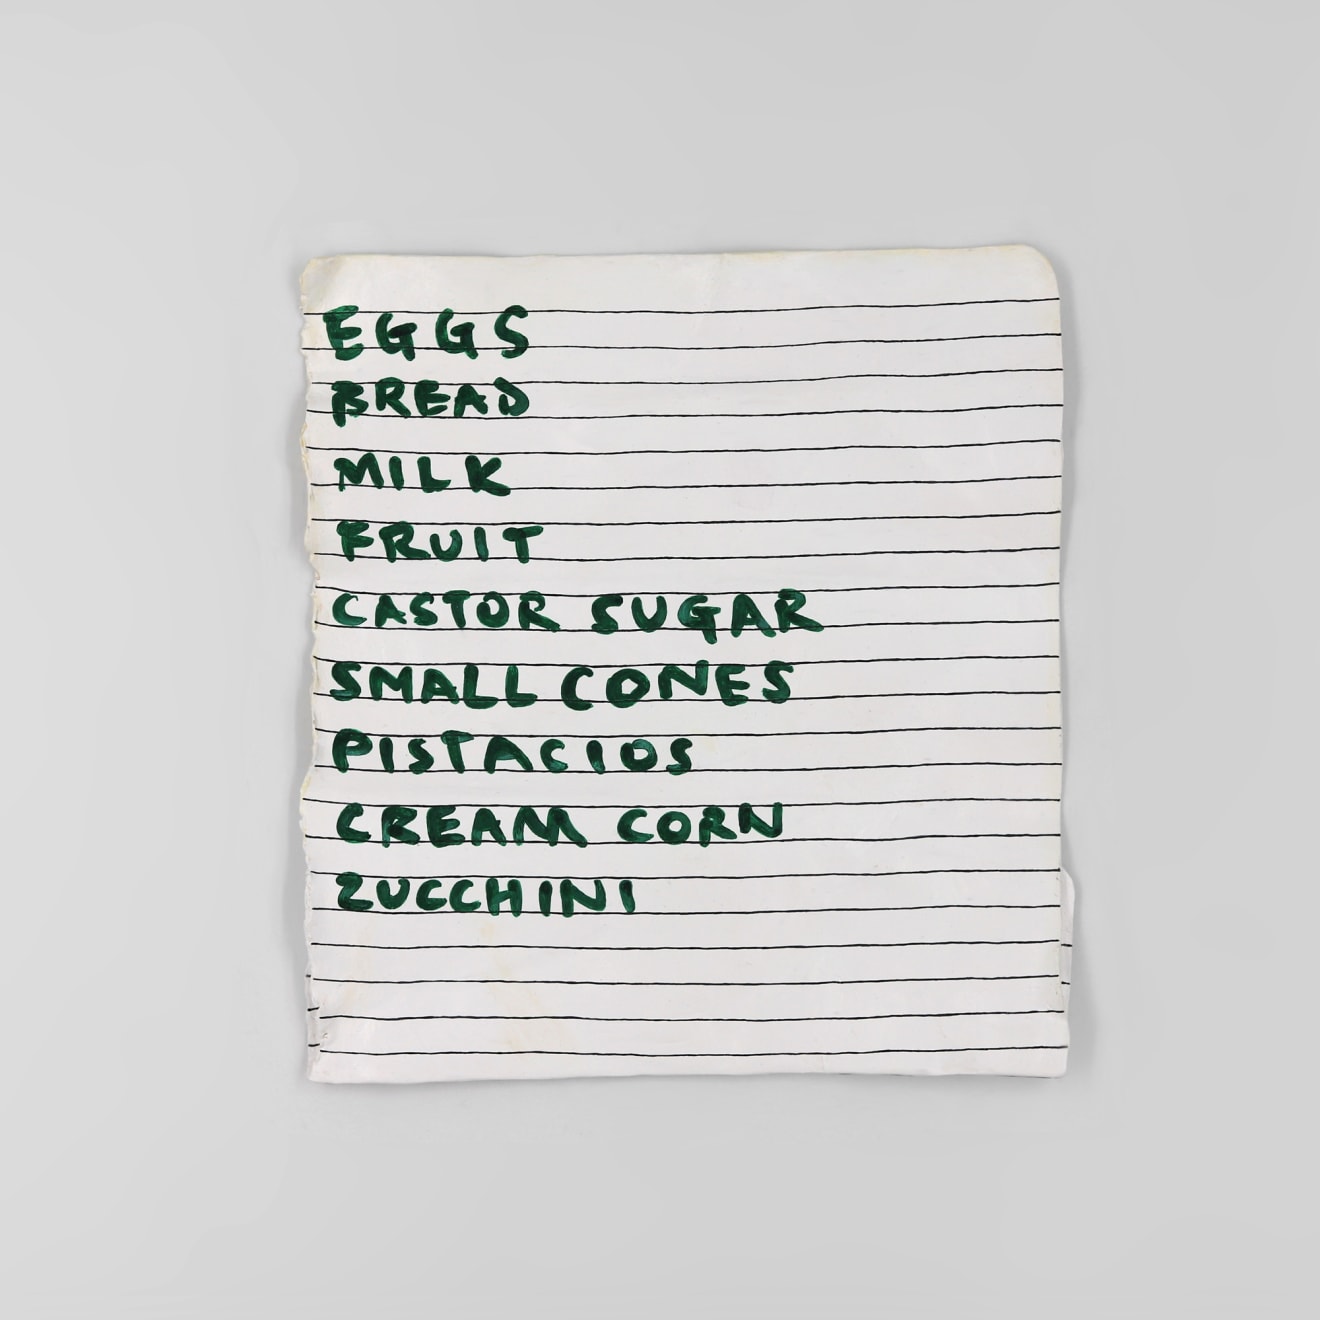 EGGS
BREAD
MILK
FRUIT
CASTOR SUGAR
SMALL CONES
PISTACIOS
CREAM CORN
ZUCCHINI